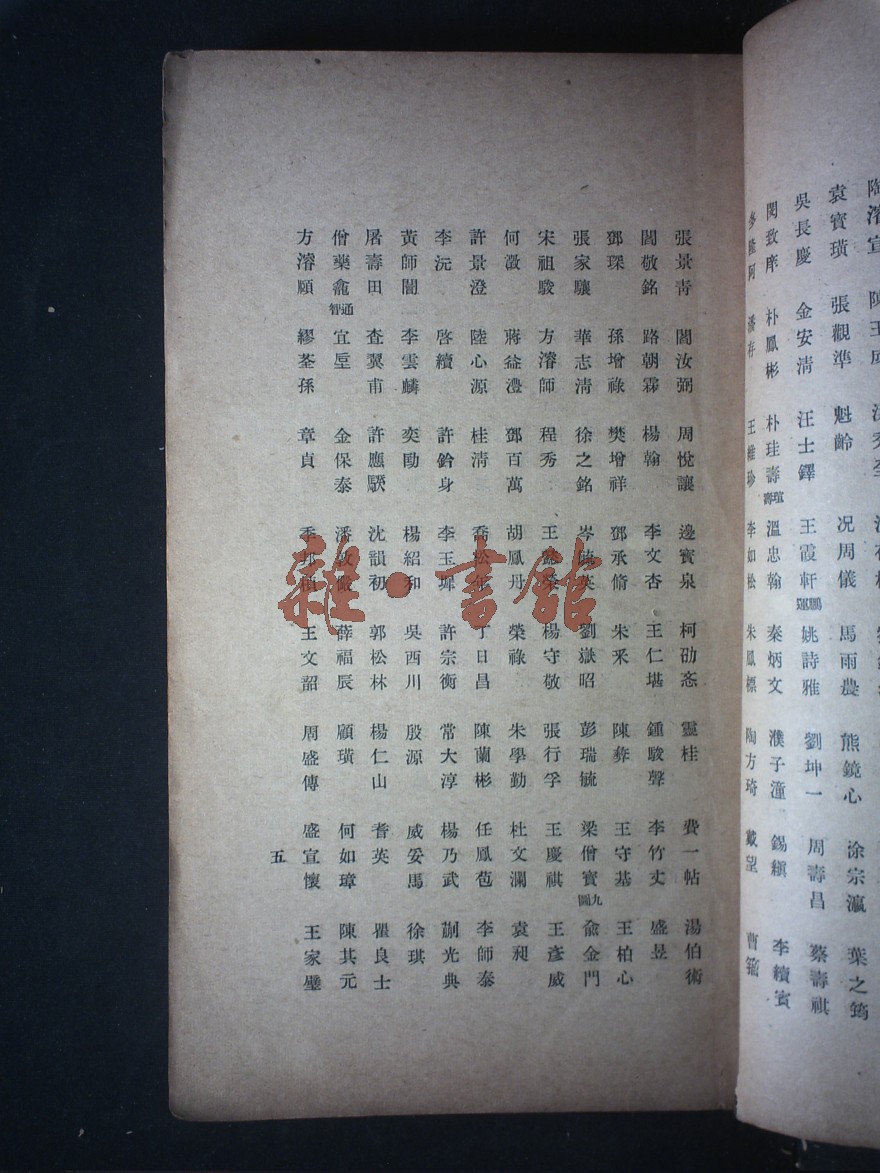 陶濬宣
袁寶璜 張觀準 魁齡 况周儀 馬雨農 熊鏡心 涂宗瀛 葉之筠
吳長慶 金安清 汪士鐸 王霞軒鵬運 姚詩雅 劉坤一 周壽昌 蔡壽祺
閔致庠 朴鳳彬 朴珪壽瓛壽 溫忠翰 秦炳文 濮子潼 錫縝 李續賓
多隆阿 潘存 王維珍 李如松 朱鳳標 陶方琦 戴望
張景青 閻汝弼 周悅讓 邊寶泉 柯劭忞 靈桂 費一帖 湯伯術
閻敬銘 路朝霖 楊翰 李文杏 王仁堪 鍾駿聲 李竹丈 盛昱
鄧琛 孫增祿 樊增祥 鄧承脩 朱釆 陳彝 王守基 王柏心
張家驤 華志清 徐之銘 岑毓英 劉嶽昭 彭瑞毓 梁僧寶九圖 兪金門
宋祖駿 方濬師 程秀 楊守敬 張行孚 王慶祺 王彥威
何澂 蔣益澧 鄧百萬 胡鳳丹 榮祿 朱學勤 杜文瀾 袁昶
許景澄 陸心源 桂清 喬松年 丁日昌 陳蘭彬 任鳳苞 李師泰
李沅 啓續 許鈐身 李玉墀 許宗衡 常大淳 楊乃武 蒯光典
黃師誾 李雲麟 奕劻 楊紹和 吳西川 殷源 威妥馬 徐琪
屠壽田 查翼甫 許應騤 沈韻初 郭松林 楊仁山 耆英 瞿良士
僧藥龕智通 宜垕 金保泰 潘敦儼 薛福辰 顧璜 何如璋 陳其元
方濬頤 繆荃孫 章貞 季邦楨 王文韶 周盛傳 盛宣懷 王家璧
五
雜·書館